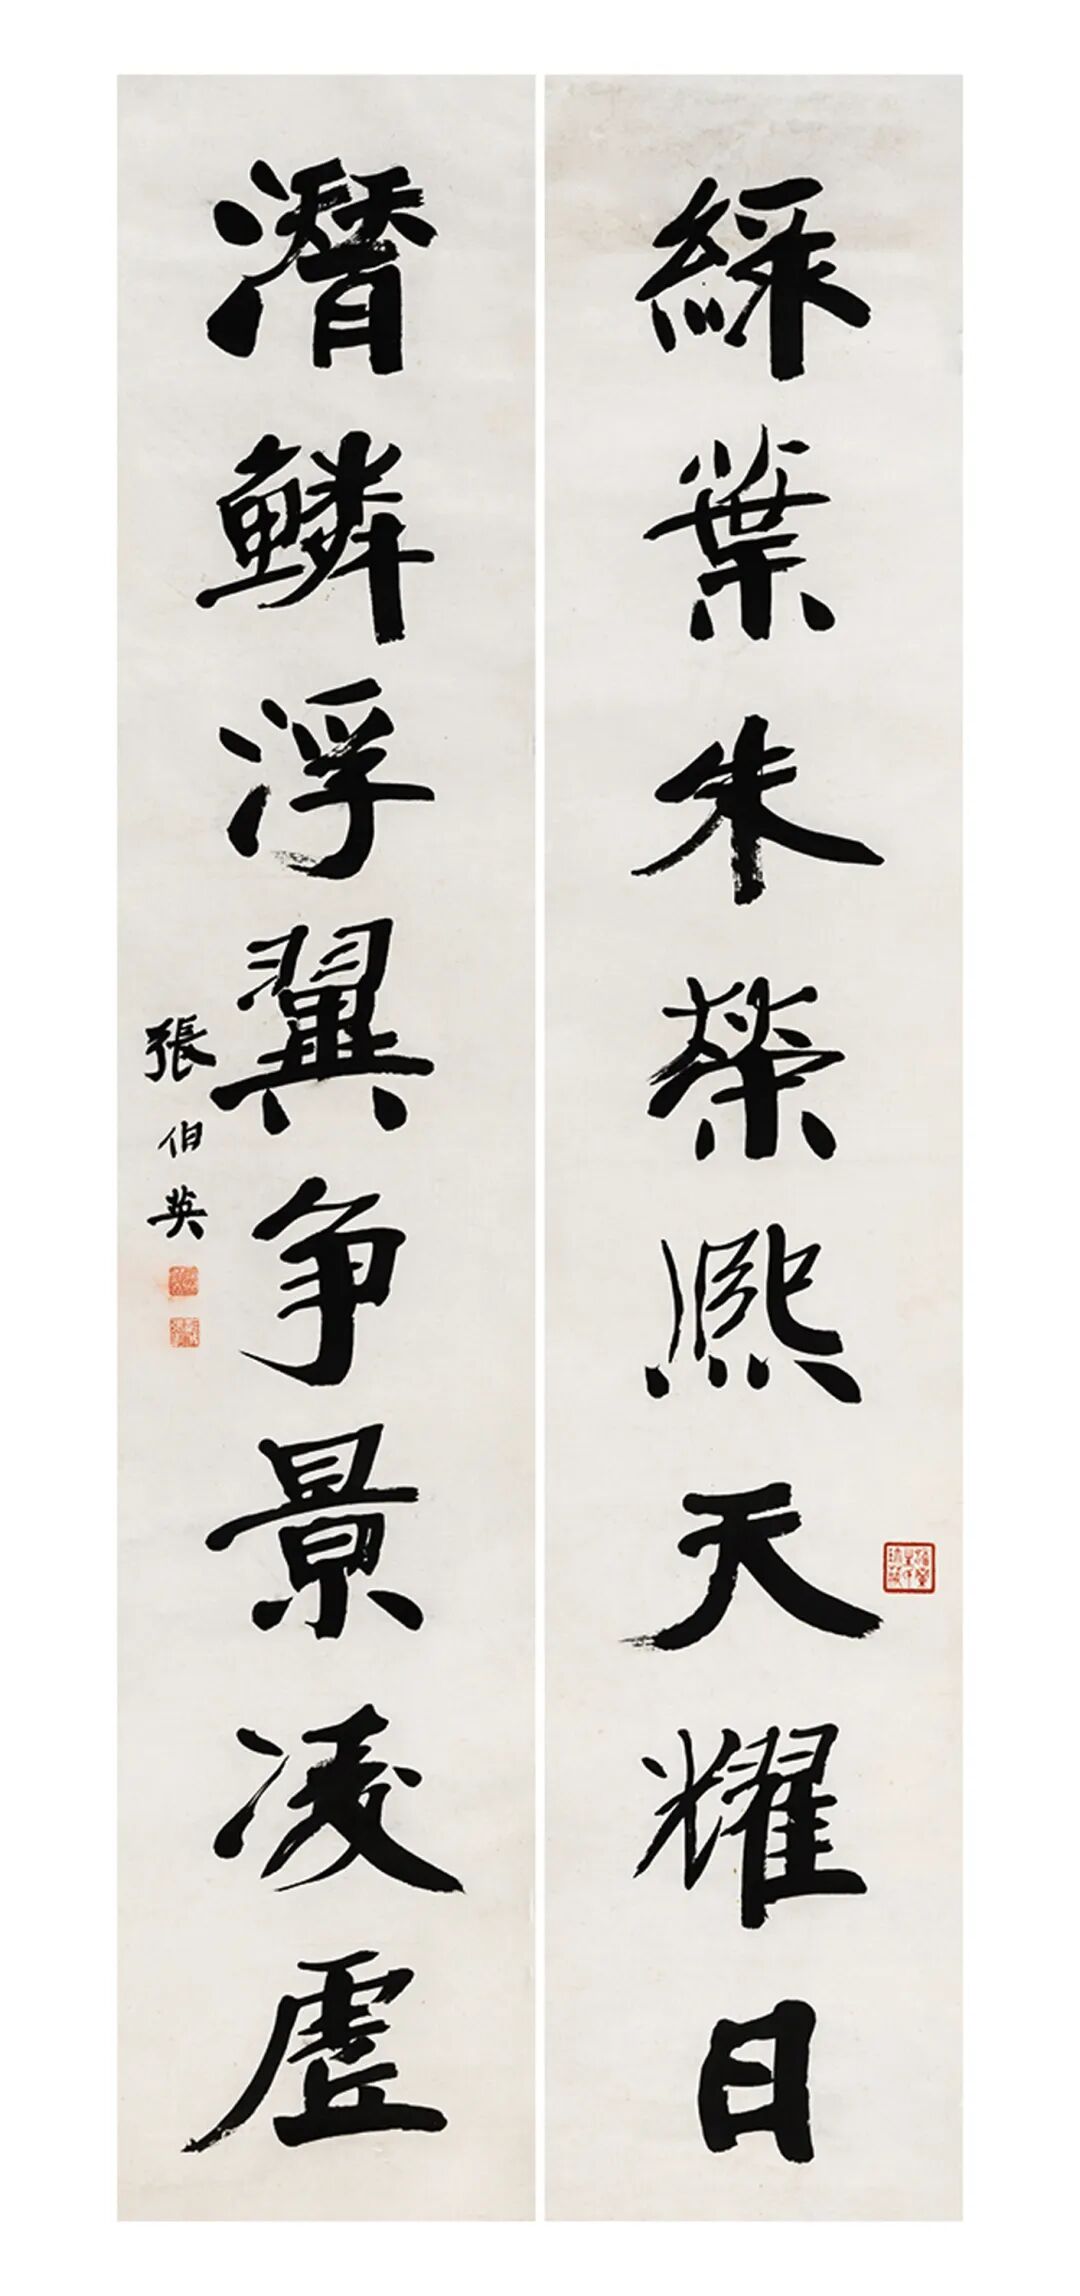 綵葉朱榮熙天耀日
潛鱗浮翼争景凌虛
張伯英